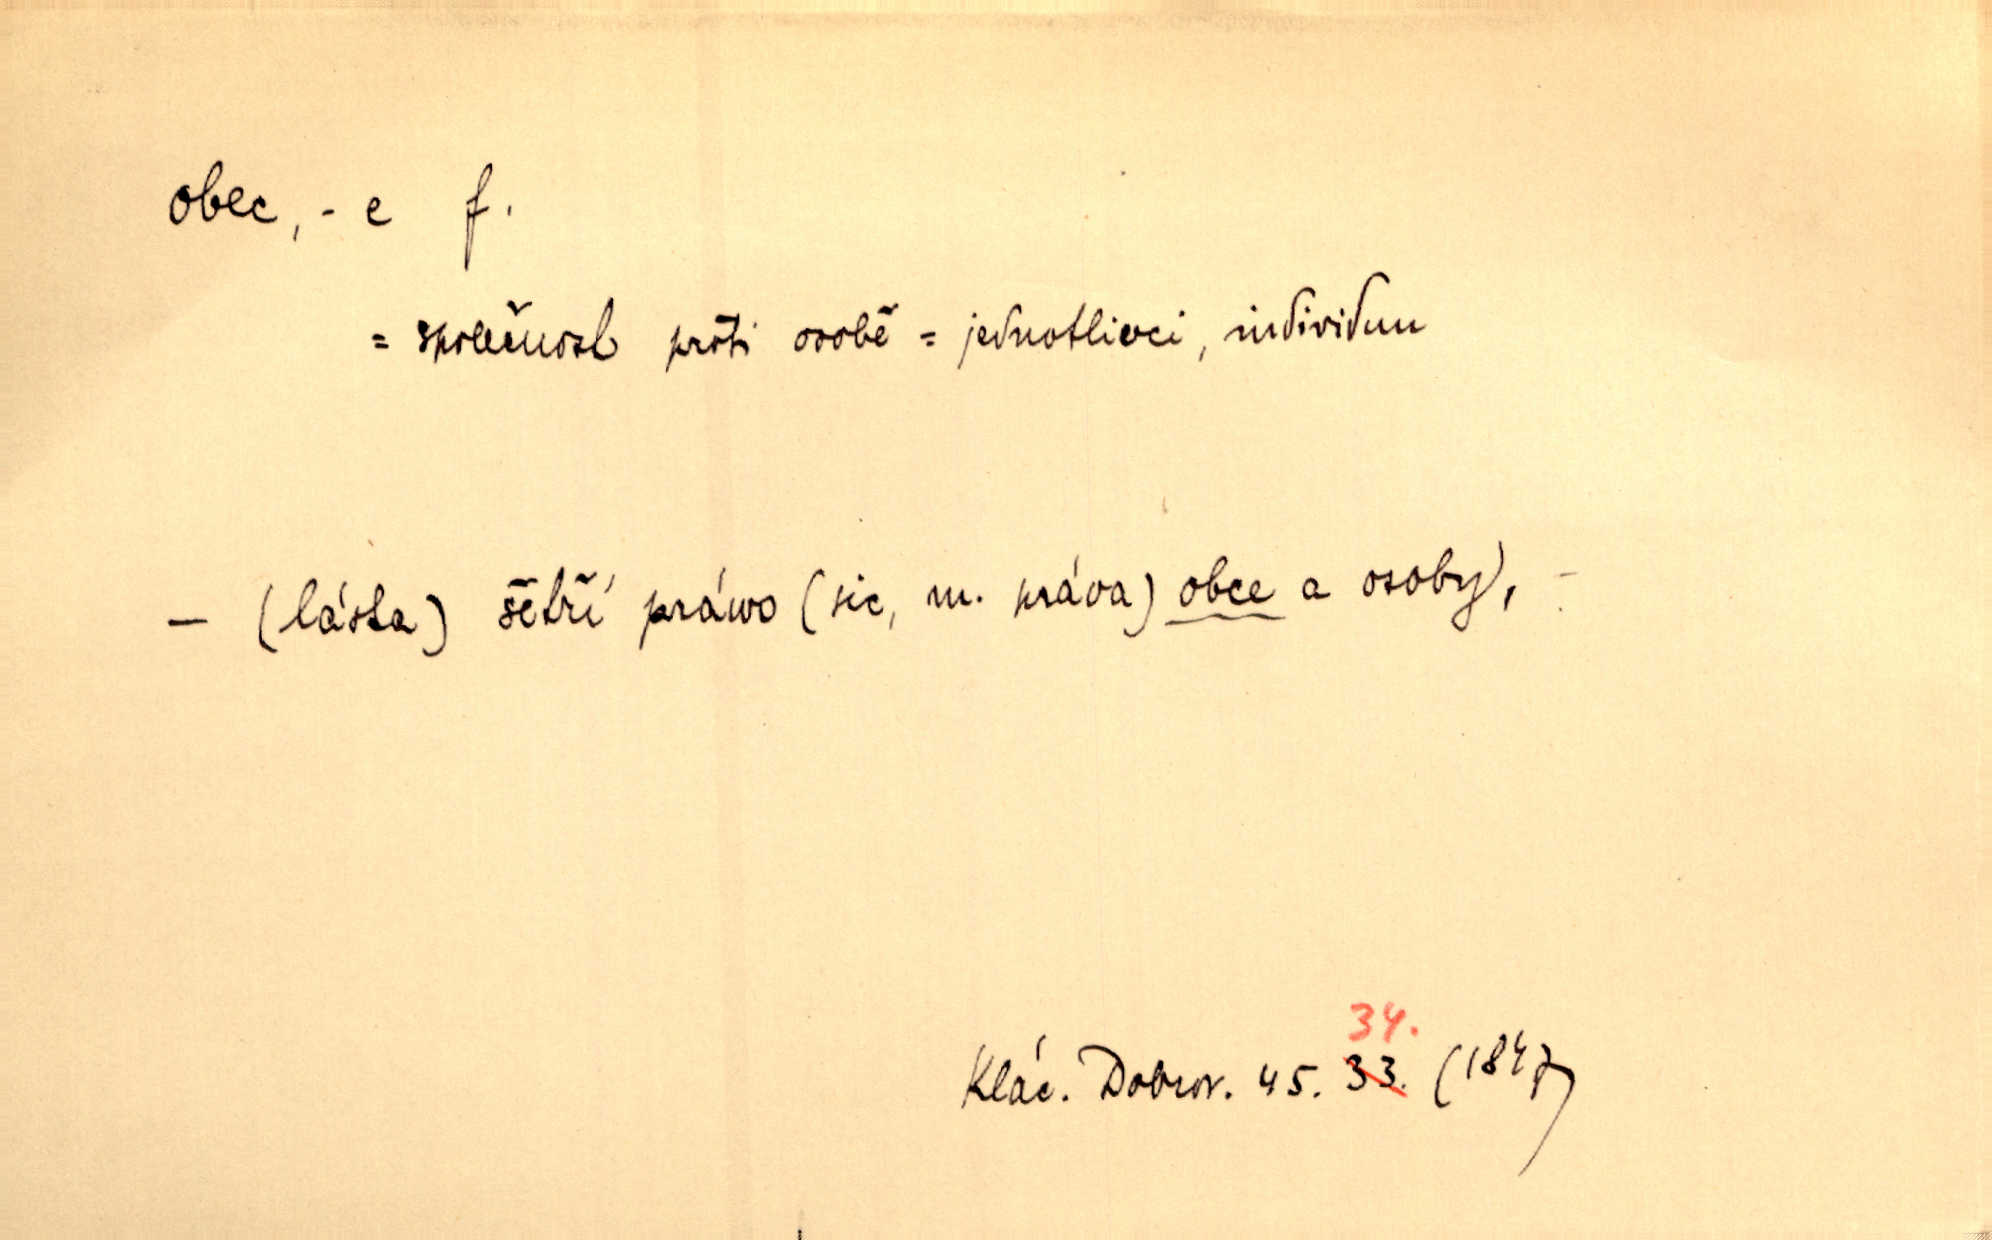 obec, -e f.
= společnost proti osobě = jednotlivci, individuu
— (láska) šetří práwo (sic, m. práva) obce a osoby), -
34.
Klác. Dobrov. 45. 33. (1847)